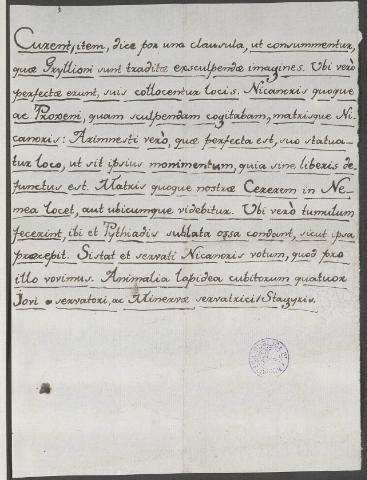 Curent, item, dice por una clausula, ut consummentur,
quæ Gryllioni sunt traditæ exsculpendæ imagines. Ubi verò
perfectæ erunt, suis collocentur locis. Nicanoris quoque
ac Proxeni, quam sculpendam cogitabam, matrisque Ni-
canoris: Arimnesti verò, quæ perfecta est, suo statua-
tur loco, ut sit ipsius monimentum, quia sine liberis de-
functus est. Matris quoque nostræ Cererem in Ne-
mea locet, aut ubicumque videbitur. Ubi verò tumulum
fecerint, ibi et Pythiadis sublata ossa condant, sicut ipsa
præcepit. Sistat et servati Nicanoris votum, quod pro
illo vovimus. Animalia lapidea cubitorum quatuor
Jovi servatori, ac Minervæ servatrici Stagyris.